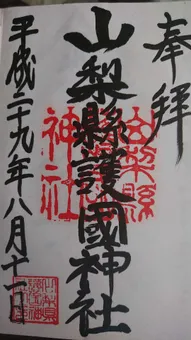 奉拝
山梨縣護國神社
平成二十九年八月十一日
山梨縣
神社